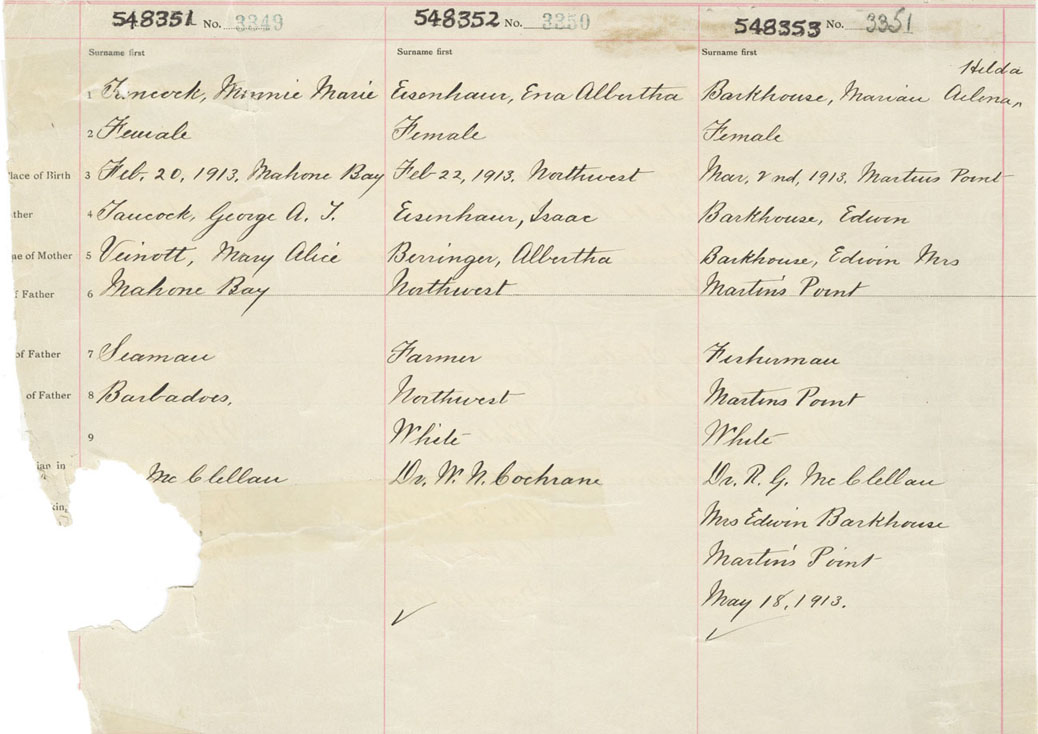 548351 No. 3349 548352 No. 3350 548353 No. 3351
Surname first Surname first Surname first
Hilda
1 Minnie Marie Eisenhaur, Ena Albertha Barkhouse, Marian
2 Female Female Female
lace of Birth 3 Feb. 20, 1913. Mahone Bay Feb 22, 1913. Northwest Mar. 2nd, 1913. Martins Point
ther 4 George A. T. Eisenhaur, Isaac Barkhouse, Edwin
ne of Mother 5 Veinott, Mary Alice Berringer, Albertha Barkhouse, Edwin Mrs
f Father 6 Mahone Bay Northwest Martin's Point
of Father 7 Seaman Farmer Fisherman
of Father 8 Barbadoes, Northwest Martins Point
9 White White
ian in Mc Clellan Dr. W. N. Cochrane Dr. R. G. Mc Clellan
kin, Mrs Edwin Barkhouse
Martin's Point
May 18, 1913.